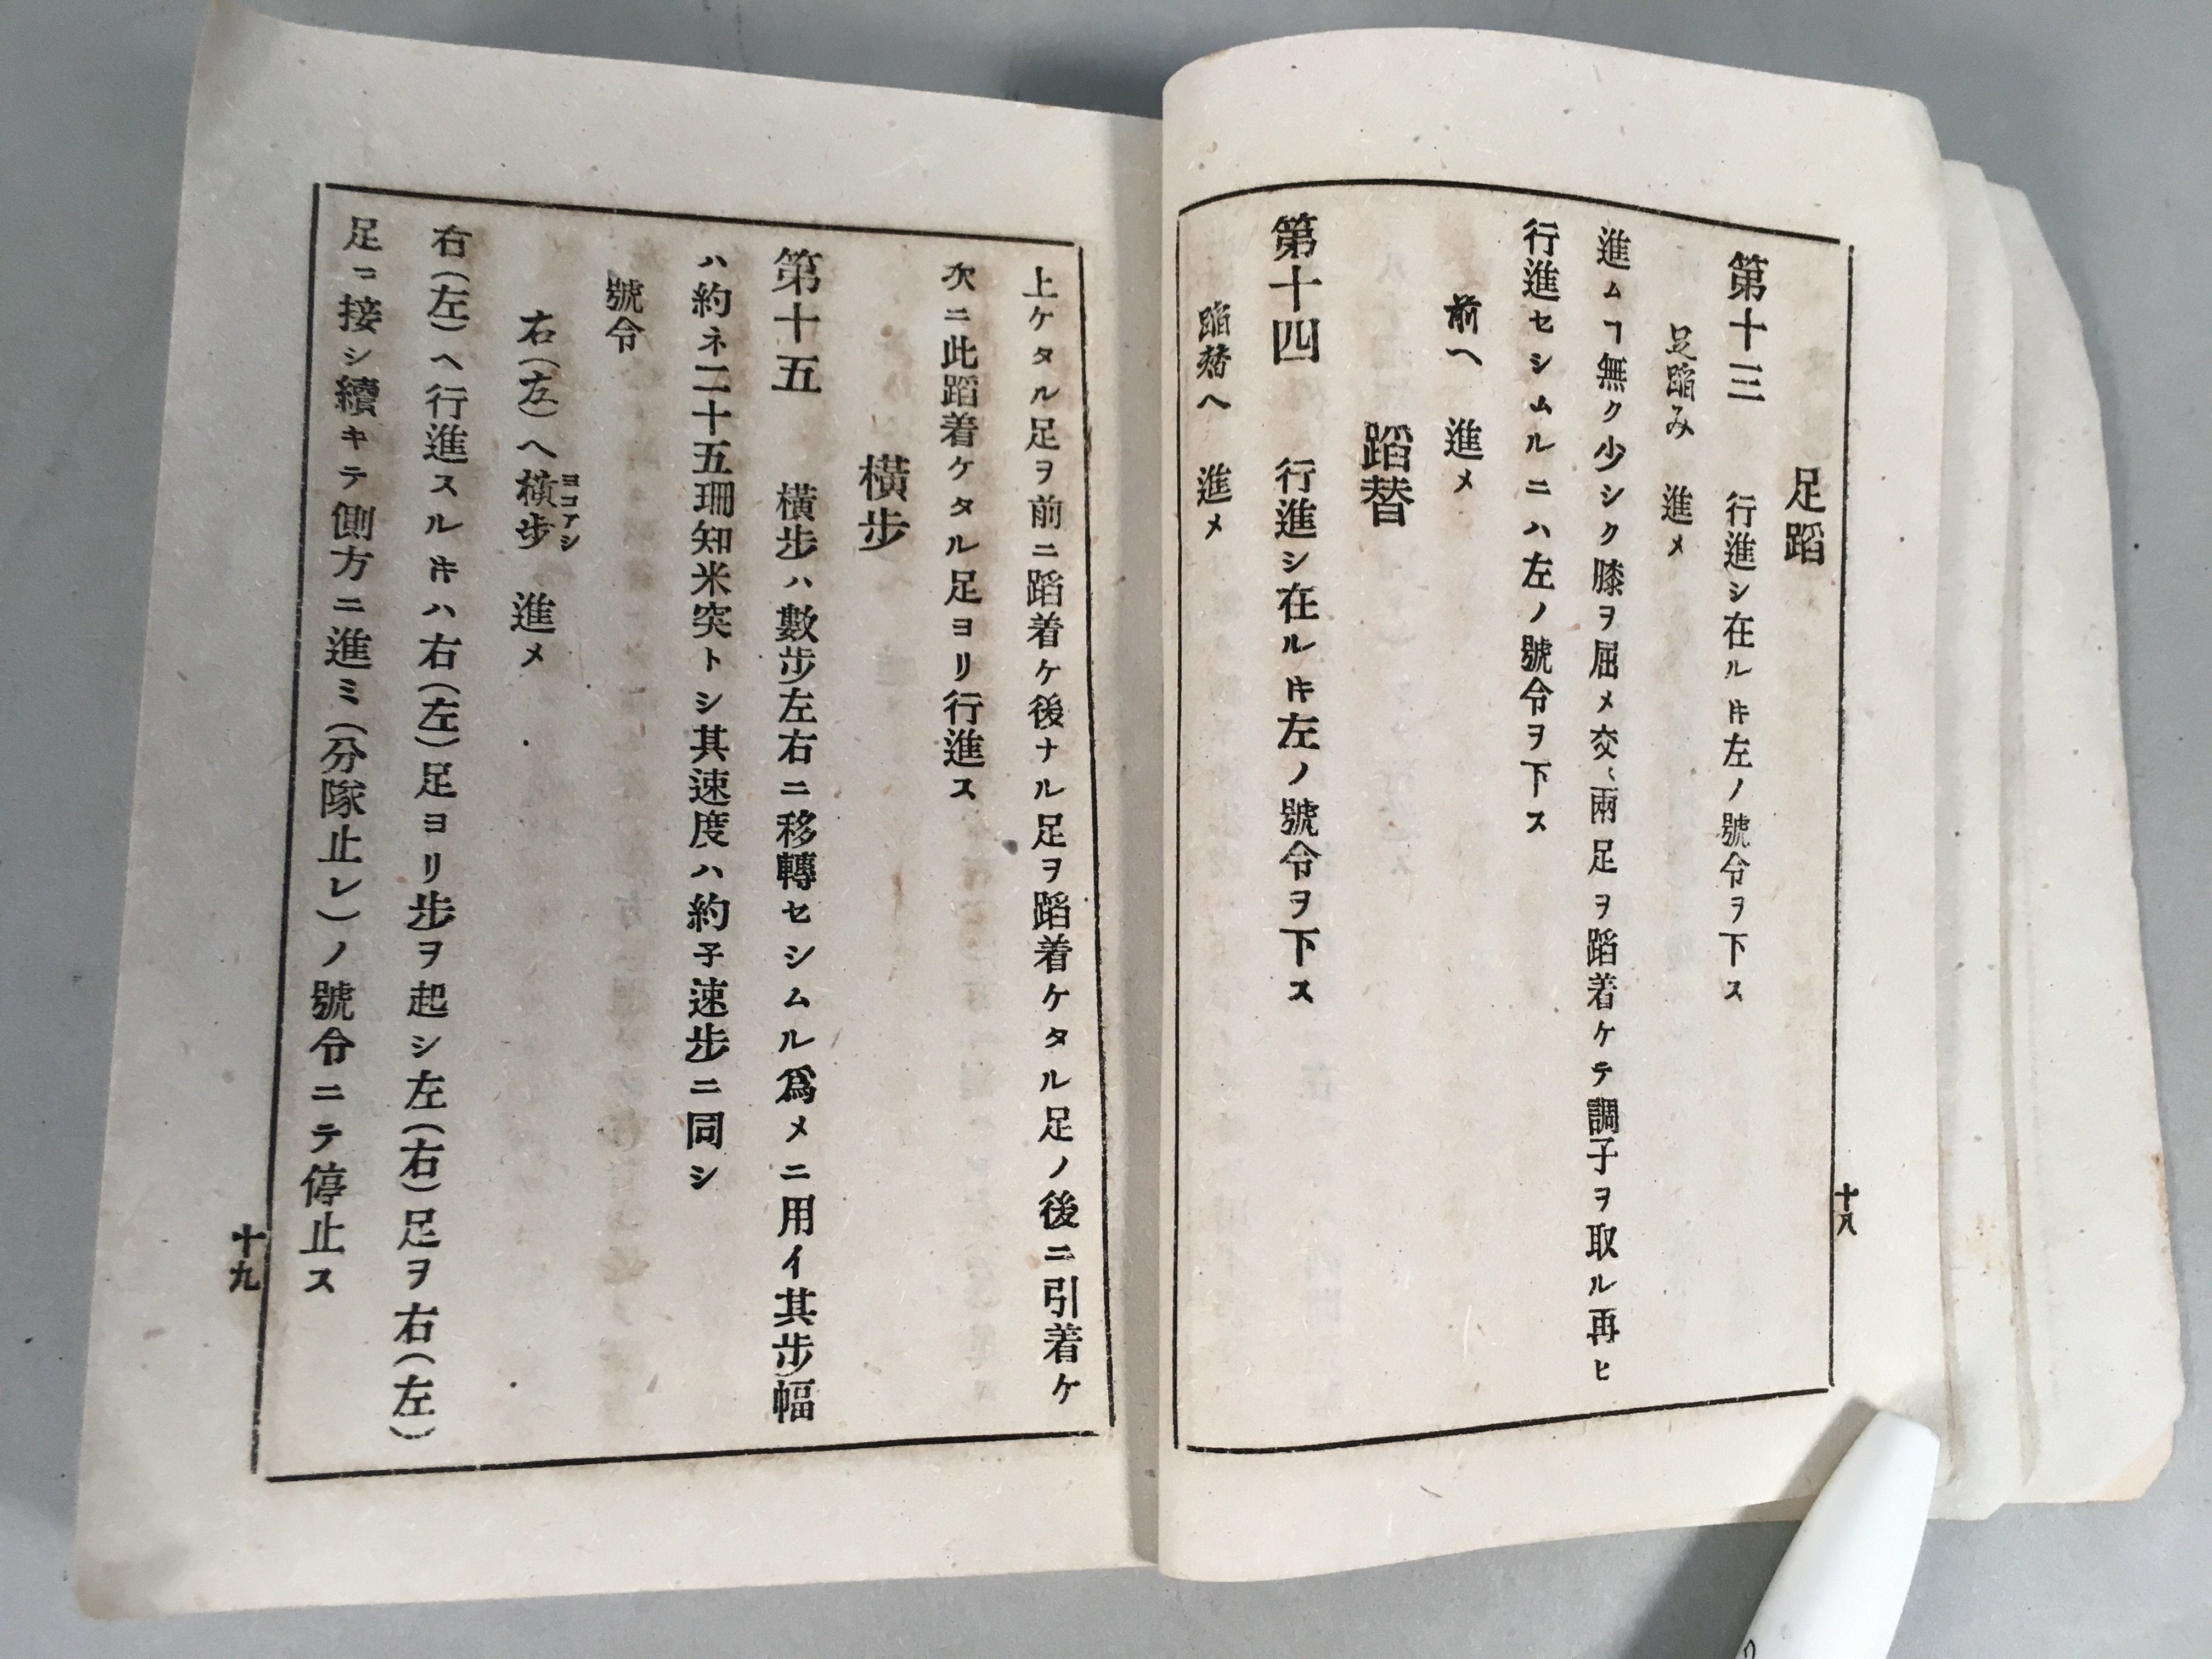 足蹈
第十三 行進シ在ルㇳキ左ノ號令ヲ下ス
足蹈み 進メ
進ムヿ無ク少シク膝ヲ屈メ交〻兩足ヲ蹈着ケテ調子ヲ取ル再ヒ
行進セシムルニハ左ノ號令ヲ下ス
前へ 進メ
蹈替
第十四 行進シ在ルㇳキ左ノ號令ヲ下ス
蹈替へ 進メ
十八
上ケタル足ヲ前ニ蹈着ケ後ナル足ヲ蹈着ケタル足ノ後ニ引着ケ
次ニ此蹈着ケタル足ヨリ行進ス
橫步
第十五 橫步ハ數步左右ニ移轉セシムル爲メニ用イ其步幅
ハ約ネ二十五珊知米突トシ其速度ハ約子速步ニ同シ
號令
右(左)へ橫步 進メ
ヨコアシ
右(左)ヘ行進スルㇳキハ右(左)足ヨリ步ヲ起シ左(右)足ヲ右(左)
足ニ接シ續キテ側方ニ進ミ(分隊止レ)ノ號令ニテ停止ス
十九